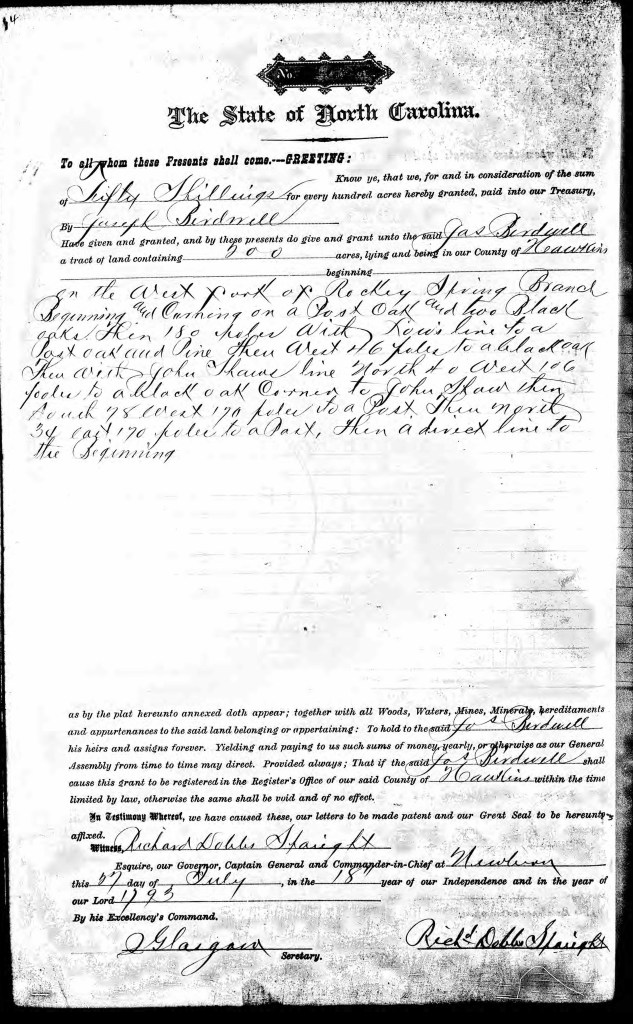 No
The State of North Carolina.
To all whom these Presents shall come.---GREETING:
Know ye, that we, for and in consideration of the sum
of Fifty Shillings for every hundred acres hereby granted, paid into our Treasury,
By Joseph Birdwell
Have given and granted, and by these presents do give and grant unto the said Jos Birdwell
a tract of land containing 200 acres, lying and being in our County of Hawkins
beginning
on the West fork of Rockey Spring Branch
Beginning and Corning on a Post Oak and two Black
oaks then 180 poles With line to a
Post oak and Pine then West 46 poles to a black oak
Then With John Shaws line North 40 West 106
poles to a black oak Corner to John Shaw then
South 78 West 170 poles to a Post. Then North
34 east 170 poles to a Post, then a direct line to
the Beginning
as by the plat hereunto annexed doth appear; together with all Woods, Waters, Mines, Minerals, hereditaments
and appurtenances to the said land belonging or appertaining: To hold to the said Jos Birdwell
his heirs and assigns forever. Yielding and paying to us such sums of money, yearly, or otherwise as our General
Assembly from time to time may direct. Provided always; That if the said Jos Birdwell shall
cause this grant to be registered in the Register's Office of our said County of Hawkins within the time
limited by law, otherwise the same shall be void and of no effect.
In Testimony Whereof, we have caused these, our letters to be made patent and our Great Seal to be hereunto
affixed.
Witness, Richard Dobbs Spaight
Esquire, our Governor, Captain General and Commander-in-Chief at Newbern
this 27 day of July, in the 18th year of our Independence and in the year of
our Lord 1793
By his Excellency's Command.
Glasgow
Seretary.
Richd Dobbs Spaight